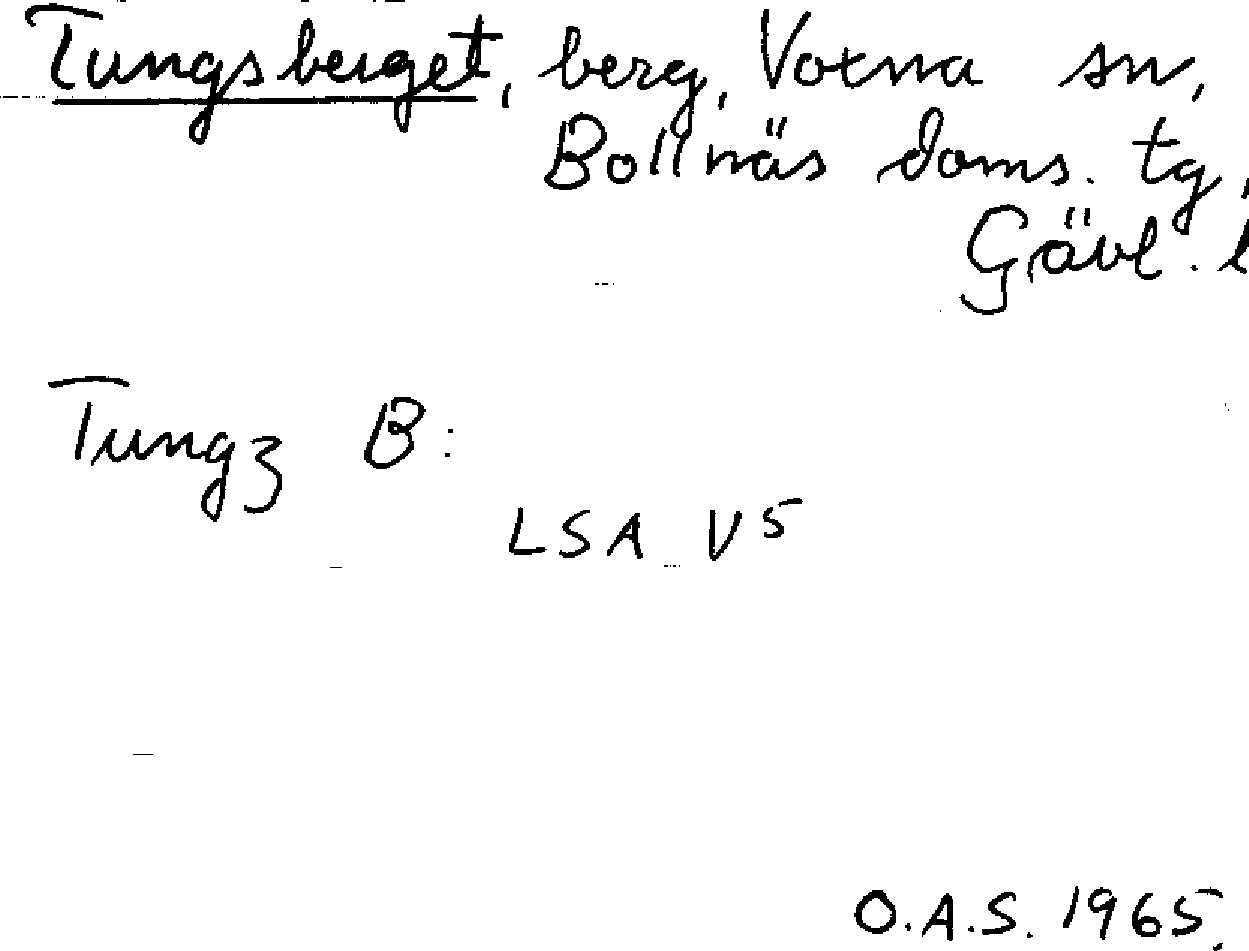 Tungsberget, berg, Voxna sn,
Bollnäs doms. tg,
Gävl. l
Tungz B:
LSA V5
O.A.S. 1965.